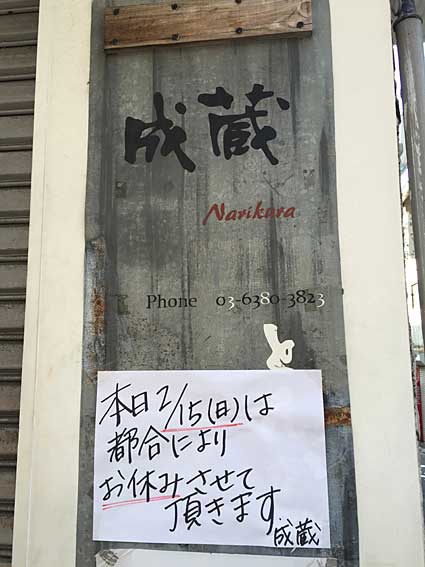 成蔵
Narikura
Phone 03-6380-3823
と
本日2/15(日)は
都合により
お休みさせて
頂きます
成蔵